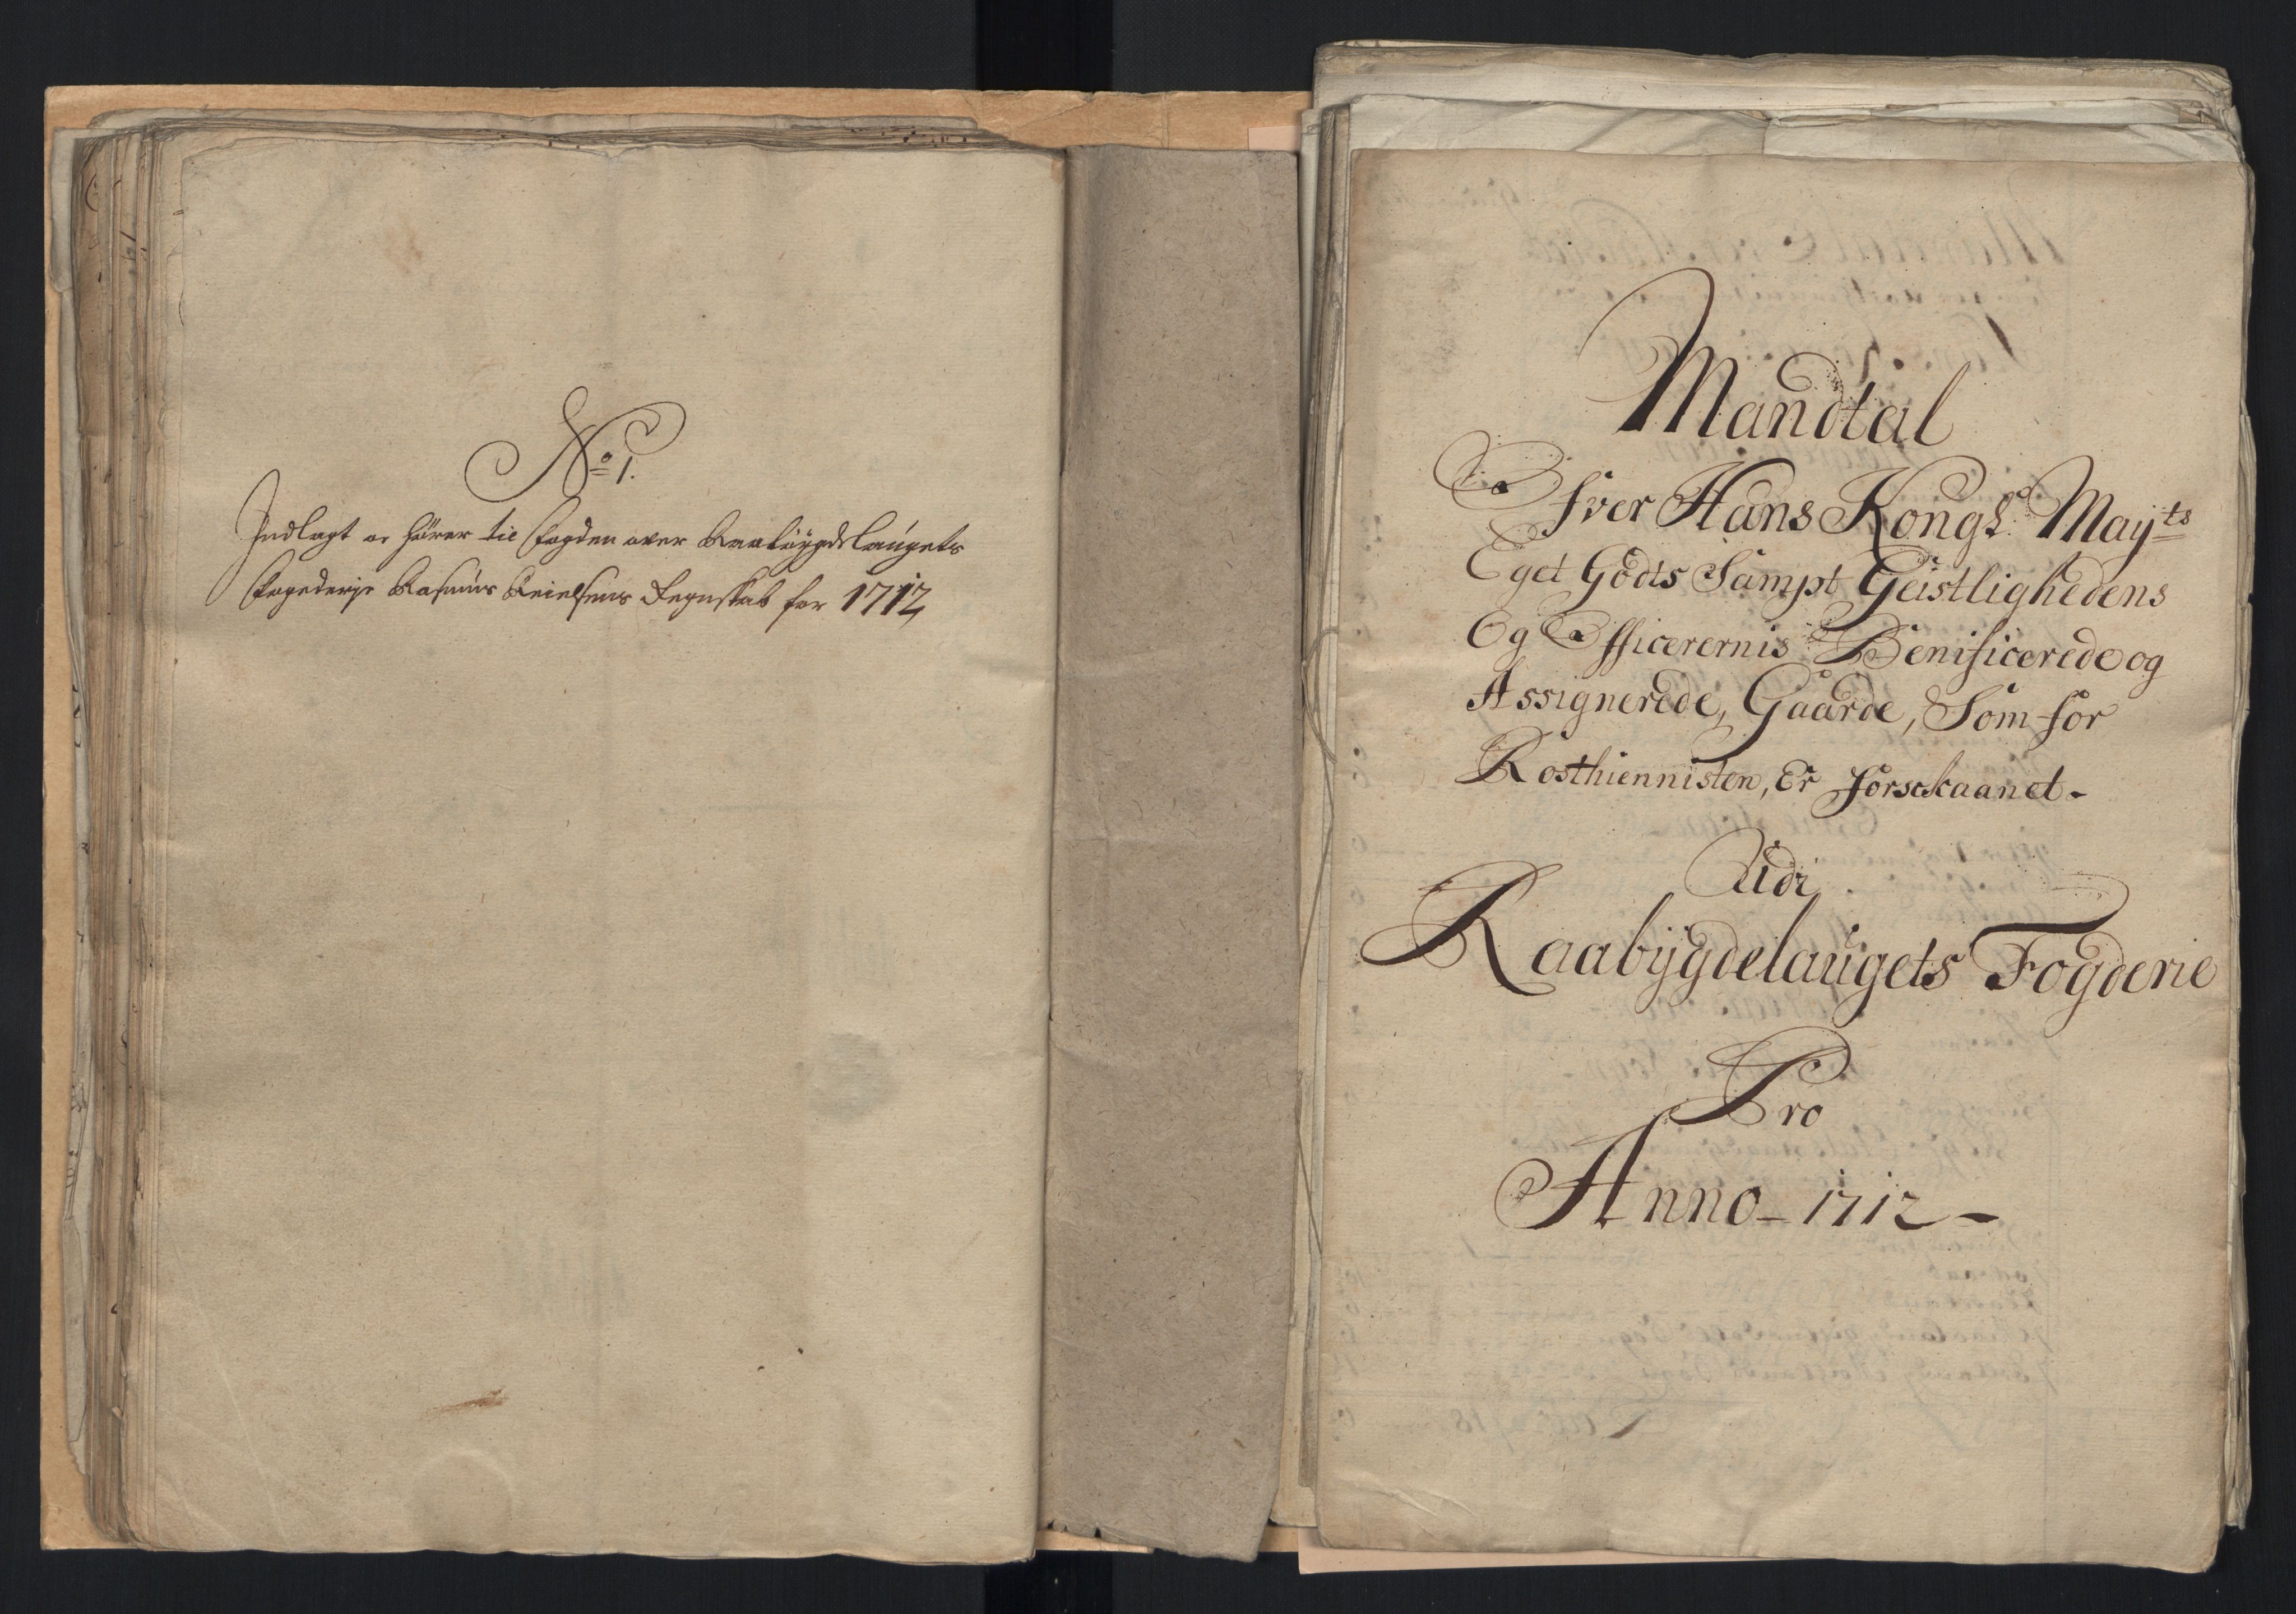 No 1.
Indlagt og hörer til fogden over Raaböygdelaugets
Fogderje Rasmus Reielsens Regnskab for 1712
Mandtal
Ofver Hans Kongl: Mayts
Eget Godts Sampt Geistlighedens
Og Officerernis Benificerede og
Assignerede, Gaarde, Som for
Rosthiennisten, Er forsckaanet-
Udi
Raabÿgdelaugets Fogderie
Pro
Anno - 1712 -